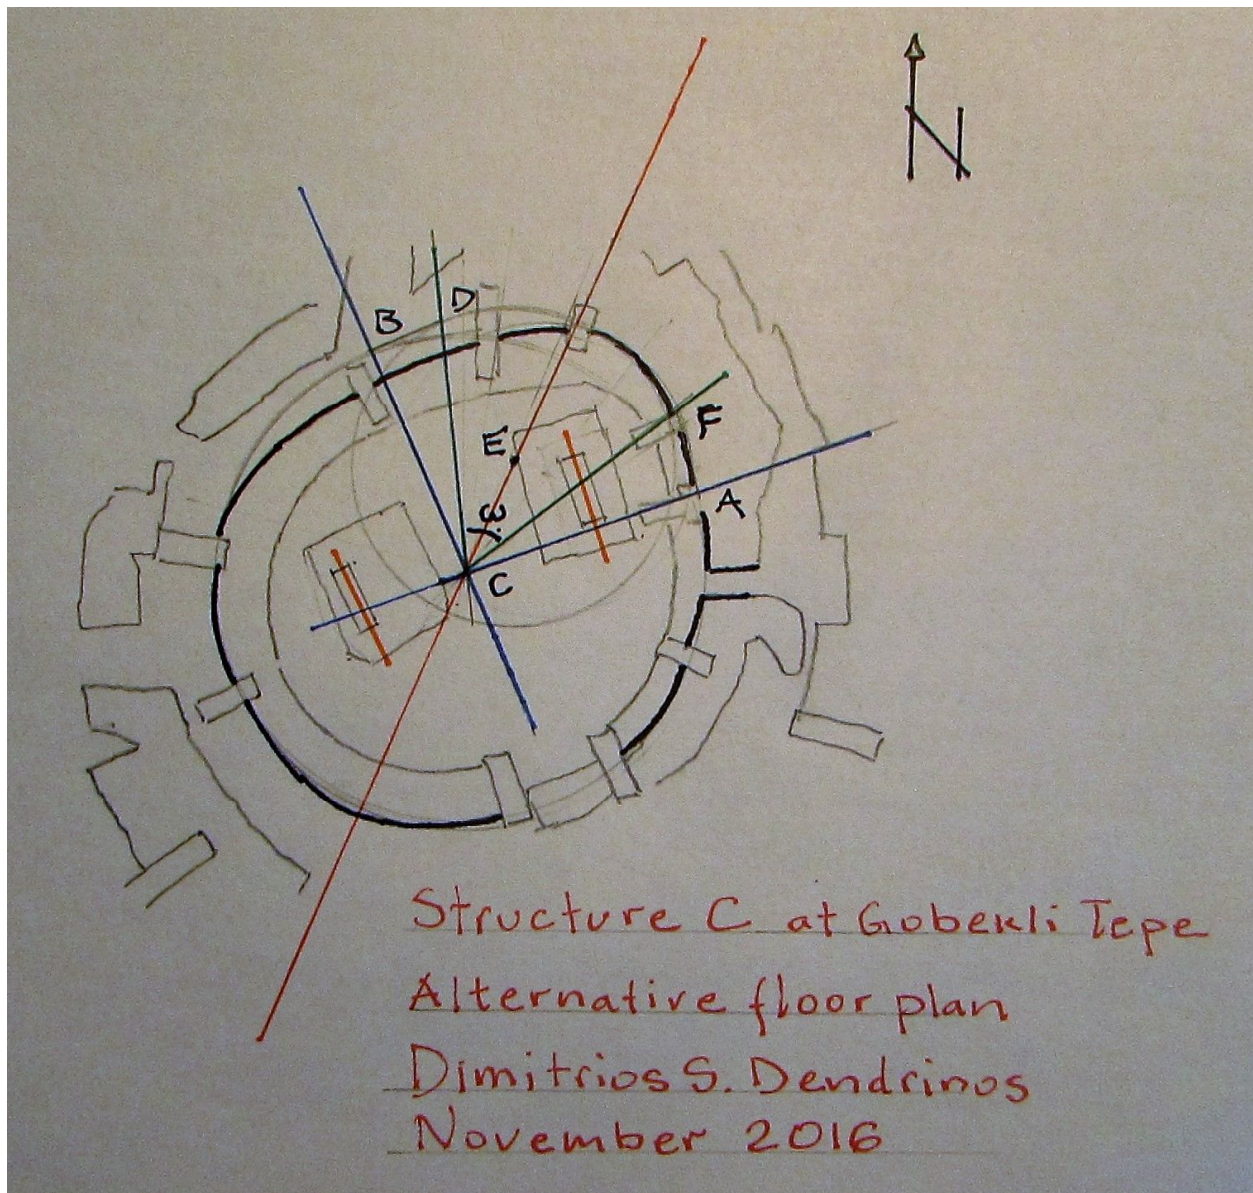 N
B
D
E
F
ω
A
C
Structure C at Gobekli Tepe
Alternative floor plan
Dimitrios S. Dendrinos
November 2016